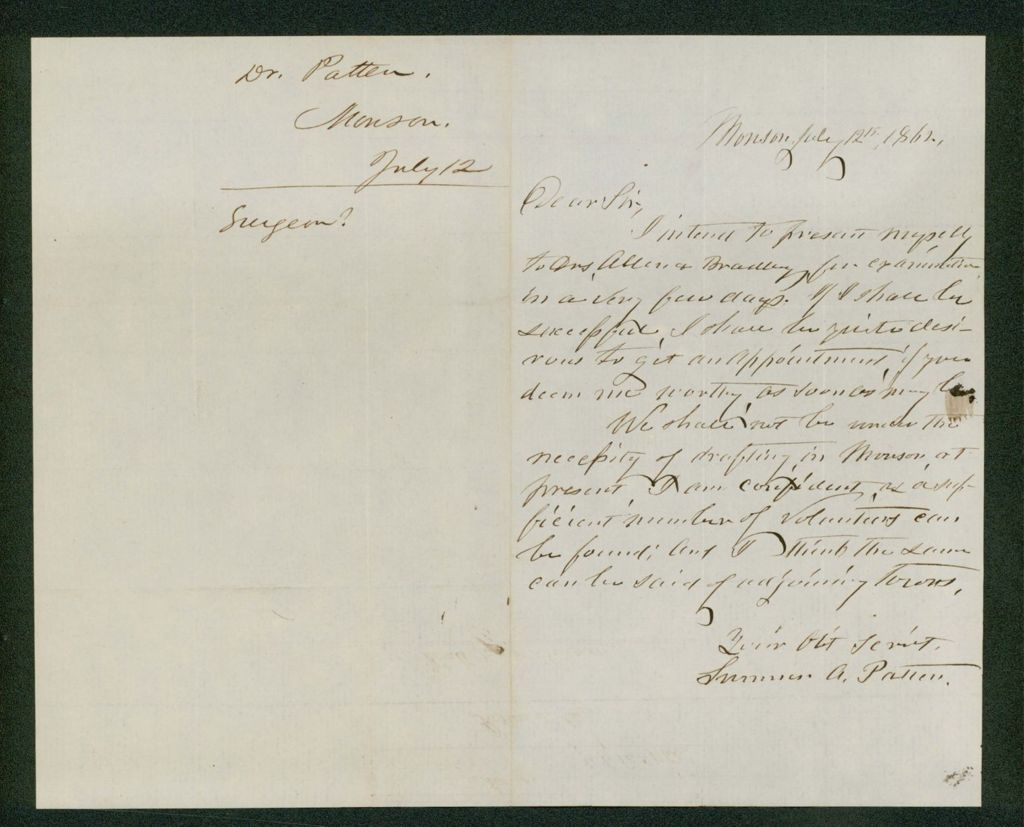 Dr. Patten.
Monson.
July 12
Surgeon?
Monson, July 12th, 1862,
Dear Sir,
I intend to present myself
to Drs, Allen & Bradley, for examination
in a very few days. If I shall be
successful, I shall be quite desi-
rous to get an appointment, if you
deem me worthy, as soon as may be.
We shall not be under the
necessity of drafting, in Monson, at
present, I am confident, as a suf-
ficient number of volunteers can
be found; and I think the same
can be said of adjoining towns,
Your Obt Servt.
Sumner A. Patten.